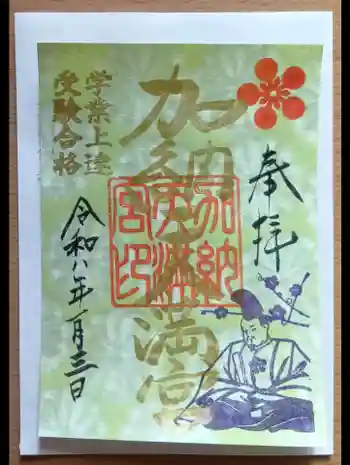 奉拝
加納天満宮
加納天満宮印
学業上達
受験合格
令和八年一月三日